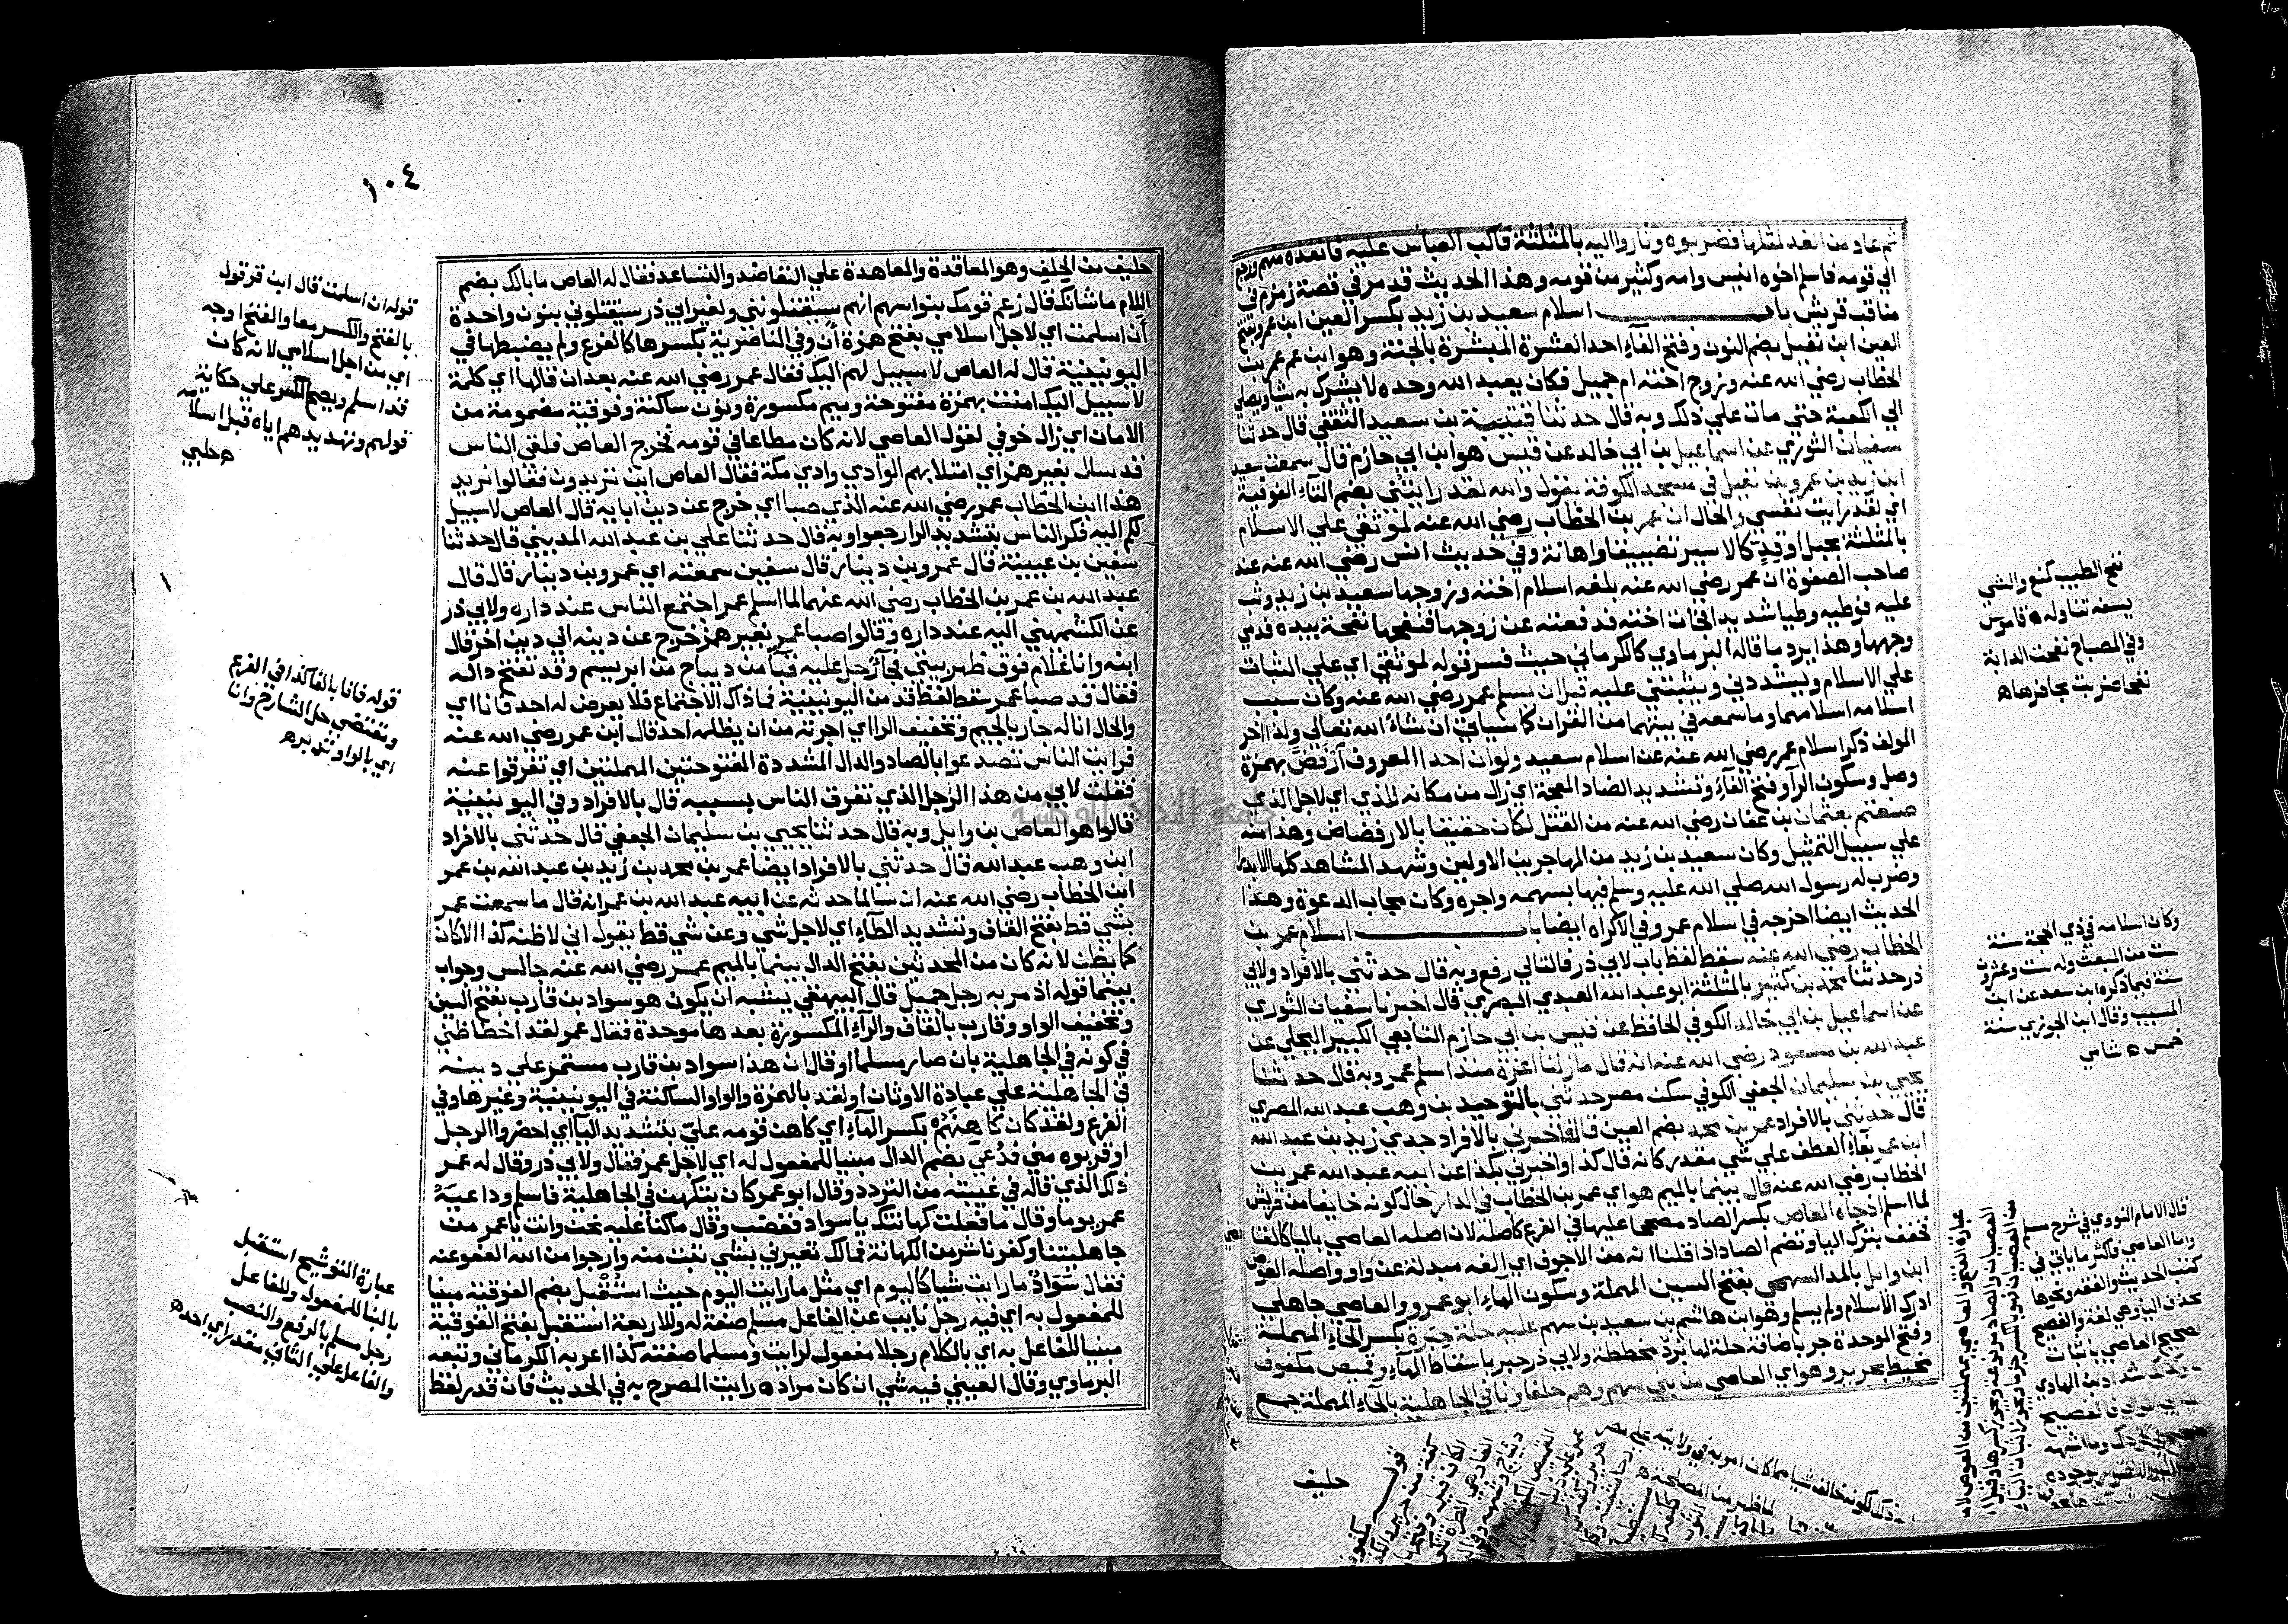 ثم عاد من الغد لمثلها فضربوه وثاروا اليه بالمثلثة فاكب العباس عليه فانقذه منهم ورجع
الي قومه فاسلم اخوه انيس وامه وكثير من قومه وهذا الحديث قد مر في قصة زمزم في
مناقب قريش باب اسلام سعيد بن زيد بكسر العين ابن عمرو بفتح
العين ابن نفيل بضم النون وفتح الفاء احد العشرة المبشرة بالجنة وهو ابن عم عمر بن
الخطاب رضي الله عنه وزوج اخته ام جميل فكان يعبد الله وحده لا يشرك به شيا ويصلي
الي الكعبة حتي مات علي ذلك وبه قال حدثنا قتيبة بن سعيد الثقفي قال حدثنا
سفيان الثوري عن اسماعيل بن ابي خالد عن قيس هو ابن ابي حازم قال سمعت سعيد
ابن زيد بن عمرو بن نفيل في مسجد الكوفة يقول والله لقد رايتني بضم التاء الفوقية
اي لقد رايت نفسي والحال ان عمر بن الخطاب رضي الله عنه لموثقي علي الاسلام
بالمثلثة بحبل او قد كالاسير تضييقا واهانة وفي حديث انس رضي الله عنه عند
صاحب الصفوة ان عمر رضي الله عنه بلغه اسلام اخته وزوجها سعيد بن زيد وثب
عليه فوطيه وطيا شديدا فجات اخته فدفعته عن زوجها فنفحها نفحة بيده فدمي
وجهها وهذا يرد ما قاله البرماوي كالكرماني حيث فسر قوله لموثقي اي علي الثبات
علي الاسلام ويشددني ويثبتني عليه قبل ان يسلم عمر رضي الله عنه وكان سبب
اسلامه اسلامهما وما سمعه في بيتهما من القران كما سياتي ان شاء الله تعالي ولذا اخر
المولف ذكر اسلام عمر رضي الله عنه عن اسلام سعيد ولو ان احدا المعروف ارفض بهمزة
وصل وسكون الرا وفتح الفاء وتشديد الضاد المعجمة اي زال من مكانه للذي اي لاجل الذي
صنعتم بعثمان بن عفان رضي الله عنه من القتل لكان حقيقا بالارفضاض وهذا منه
علي سبيل التمثيل وكان سعيد بن زيد من المهاجرين الاولين وشهد المشاهد كلها الا بدرا
وضرب له رسول الله صلي الله عليه وسلم فيها بسهمه واجره وكان مجاب الدعوة وهذا
الحديث ايضا اخرجه في اسلام عمر وفي الاكراه ايضا باب اسلام عمر بن
الخطاب رضي الله عنه سقط لفظ باب لابي ذر فالتالي رفع وبه قال حدثني بالافراد ولابي
ذر حدثنا محمد بن كثير بالمثلثة ابو عبد الله العبدي البصري قال اخبرنا سفيان الثوري
عن اسماعيل بن ابي خالد الكوفي الحافظ عن قيس بن ابي حازم التابعي الكبير البجلي عن
عبد الله بن مسعود رضي الله عنه انه قال ما زلنا اعزة منذ اسلم عمر وبه قال حدثنا
يحيي بن سليمان الجعفي الكوفي سكن مصر حدثني بالتوحيد بن وهب عبد الله المصري
قال حدثني بالافراد عمر بن محمد بضم العين قال فاخبرني بالافراد جدي زيد بن عبد الله
ابن عمر بفاء العطف علي شي مقدر كانه قال كذا واخبرني بكذا عن ابيه عبد الله عمر بن
الخطاب رضي الله عنه قال بينما باليم هو اي عمر بن الخطاب في الدار حال كونه خايفا من قريش
لما اسلم اذ جاه العاص بكسر الصاد مصححا عليها في الفرع كاصله لان اصله العاصي باليا كالقاضي
فخفف بترك اليا وتضم الصاد اذا قلنا انه من الاجوف اي الفه مبدلة عن واو واصله العوص
ابن وايل بالمد السهمي بفتح السين المهملة وسكون الهاء ابو عمرو والعاصي جاهلي
ادرك الاسلام ولم يسلم وهو ابن هاشم بن سعيد بن سهم عليه حلة حبرة بكسر الحاء المهملة
وفتح الموحدة جر باضافة حلة لها برد مخططة ولابي ذر حبر باسقاط الهاء وقميص مكفوف
مخيط بحرير وهو اي العاصي من بني سهم وهم حلفاونا في الجاهلية بالحاء المهملة جمع
حليف
نفح الطيب كمنع والشي
بسيفه تناوله ه قاموس
وفي المصباح نفحت الدابة
نفحا ضربت بحافرها ه
وكان اسلامه في ذي الحجة سنة
ست من البعث وله ست وعشرون
سنة فيما ذكره ابن سعد عن ابن
المسيب وقال ابن الجوزي سنة
خمس ه شامي
قال الامام النووي في شرح مسلم
واما العاصي فاكثر ما ياتي في
كتب الحديث والفقه ونحوها
بحذف اليا وهي لغة والفصيح
الصحيح العاصي باثبات
شداد بن الهادي
١٠٤
حليف بن الحلف وهو المعاقدة والمعاهدة علي التعاضد والتساعد فقال له العاص ما بالك بضم
اللام ما شانك قال زعم قومك بنو اسهم انهم سيقتلونني ولغير ابي ذر سيقتلوني بنون واحدة
أن اسلمت اي لاجل اسلامي بفتح همزة أن وفي الناصرية بكسرها كالفرع ولم يضبطها في
اليونينية قال له العاص لا سبيل لهم اليك فقال عمر رضي الله عنه بعد ان قالها اي كلمة
لا سبيل اليك امنت بهمزة مفتوحة وميم مكسورة ونون ساكنة وفوقية مضمومة من
الامان اي زال خوفي لقول العاصي لانه كان مطاعا في قومه فخرج العاص فلقي الناس
قد سال بغير همز اي امتلا بهم الوادي وادي مكة فقال العاص اين تريدون فقالوا نريد
هذا ابن الخطاب عمر رضي الله عنه الذي صبا اي خرج عن دين ابايه قال العاص لا سبيل
لكم اليه فكر الناس بتشديد الرا رجعوا وبه قال حدثنا علي بن عبد الله المديني قال حدثنا
سفين بن عيينة قال عمرو بن دينار قال سفين سمعته اي عمرو بن دينار قال قال
عبد الله بن عمر بن الخطاب رضي الله عنهما لما اسلم عمر اجتمع الناس عند داره ولابي ذر
عن الكشمهيني اليه عند داره وقالوا صبا عمر بغير همز خرج عن دينه الي دين اخر قال
ابنه وانا غلام فوق ظهر بيتي فجاء رجل عليه قبا من ديباج من ابريسم وقد تفتح داله
فقال قد صبا عمر سقط لفظ قد من اليونينية فما ذاك الاجتماع فلا يعرض له احد فانا اي
والحال انا له جار بالجيم وتخفيف الرا اي اجرته من ان يظلمه احد قال ابن عمر رضي الله عنه
فرايت الناس تصدعوا بالصاد والدال المشددة المفتوحتين المهملتين اي تفرقوا عنه
فقلت لابي من هذا الرجل الذي تفرق الناس بسببه قال بالافراد وفي اليونينية
قالوا هو العاص بن وايل وبه قال حدثنا يحيي بن سليمان الجعفي قال حدثني بالافراد
ابن وهب عبد الله قال حدثني بالافراد ايضا عمر بن محمد بن زيد بن عبد الله بن عمر
ابن الخطاب رضي الله عنه ان سالما حدثه عن ابيه عبد الله بن عمر انه قال ما سمعت عمر
بشي قط بفتح القاف وتشديد الطاء اي لاجل شي وعن شي قط يقول اني لاظنه كذا الا كان
كما يظن لانه كان من المحدثين بفتح الدال بينما بالميم عمر رضي الله عنه جالس وجواب
بينما قوله اذ مر به رجل جميل قال البيهقي يشبه ان يكون هو سواد بن قارب بفتح السين
وتخفيف الواو وقارب بالقاف والراء المكسورة بعدها موحدة فقال عمر لقد اخطا ظني
في كونه في الجاهلية بان صار مسلما او قال ان هذا سواد بن قارب مستمر علي دينه
في الجاهلية علي عبادة الاوثان او لقد بالهمزة والواو الساكنة في اليونينية وغيرها وفي
الفرع ولقد كان كاهنهم بكسر الهاء اي كاهن قومه علي بتشديد اليا اي احضروا الرجل
او قربوه مني فدعي بضم الدال مبنيا للمفعول له اي لاجل عمر فقال ولابي ذر وقال له عمر
ذلك الذي قاله في غيبته من التردد وقال ابو عمر كان يتكهن في الجاهلية فاسلم وداعبه
عمر يوما وقال ما فعلت كهانتك يا سواد فغضب وقال ما كنا عليه نحن وانت يا عمر من
جاهليتنا وكفرنا شر من الكهانة فمالك تعيرني بشي تبت منه وارجوا من الله العفو عنه
فقال سواد ما رايت شيا كاليوم اي مثل ما رايت اليوم حيث استقبل بضم الفوقية مبنيا
للمفعول به اي فيه رجل نايب عن الفاعل مسلم صفة له وللاربعة استقبل بفتح الفوقية
مبنيا للفاعل به اي بالكلام رجلا مفعول لرايت ومسلما صفته كذا اعربه الكرماني وتبعه
البرماوي وقال العيني فيه شي ان كان مراده رايت المصرح به في الحديث فان قدر لفظ
قوله ان اسلمت قال ابن قرقول
بالفتح والكسر معا والفتح اوجه
اي من اجل اسلامي لانه كان
قد اسلم ويصح الكسر علي حكاية
قولهم وتهديدهم اياه قبل اسلامه
ه حلبي
قوله فانا بالفا كذا في الفرع
وتقتضي حل الشارح وانا
اي بالواو
عبارة التوشيح استقبل
بالبنا للمفعول وللفاعل
رجل مسلم بالرفع والنصب
والفاعل علي الثاني مقدر اي احد ه